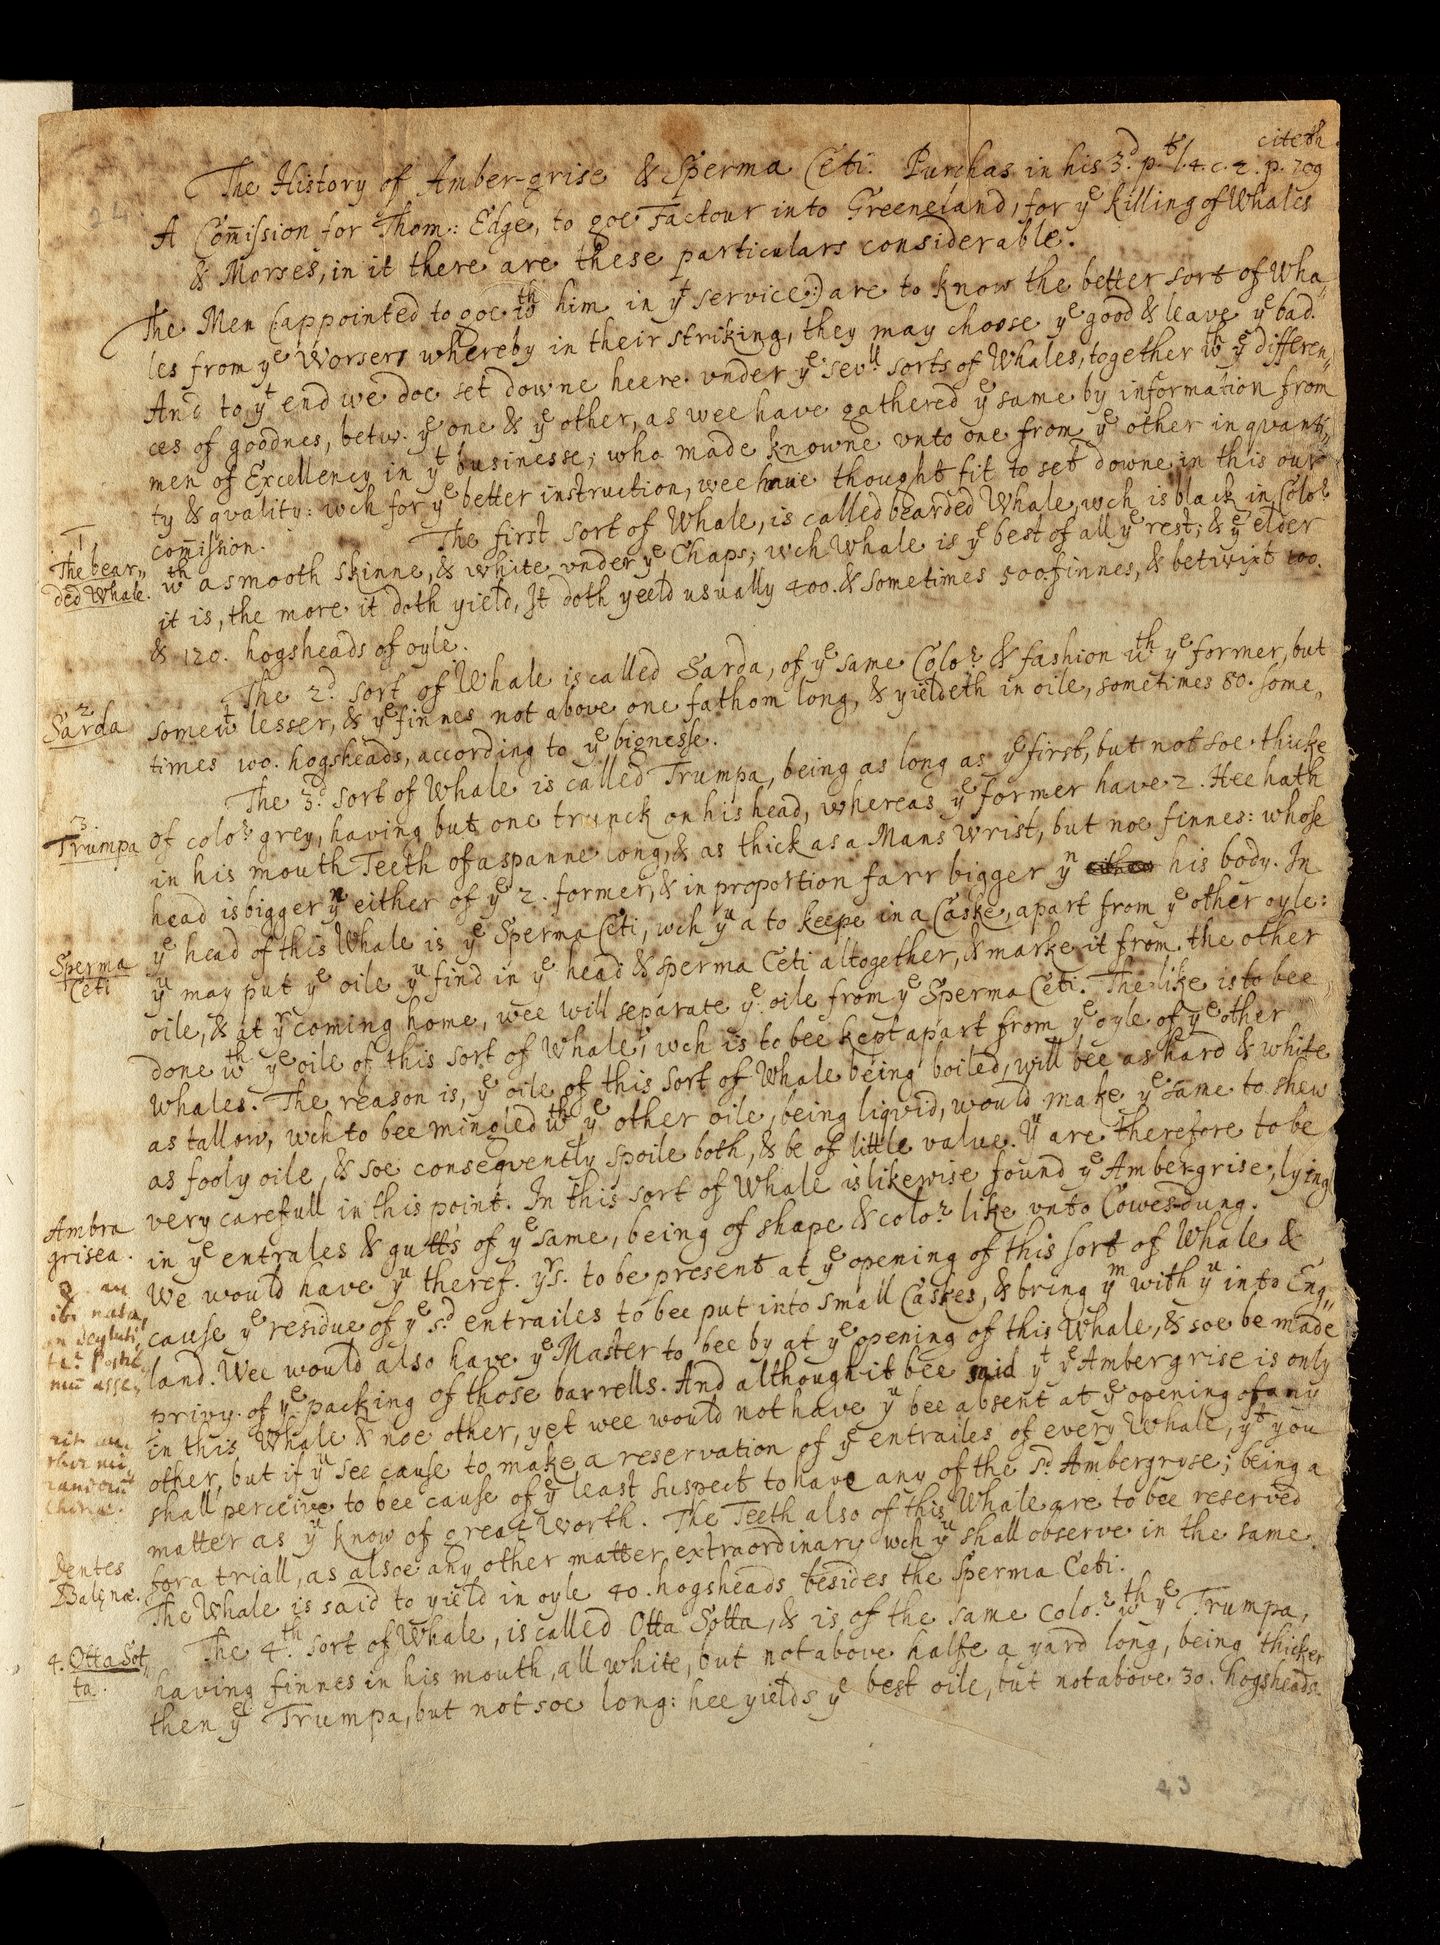 citeth
The History of Amber-grise & Sperma Ceti. Purchas in his 3d pt l.4. c. 2. p. 709
24
A Com̄ission for Thom: Edge, to goe Factour into Greeneland, for ye killing of Whales
& Morses, in it there are these particulars considerable.
The Men (appointed to goe wth him in yt service:) are to know the better sort of Wha,,
les from ye Worser, whereby in their striking, they may choose ye good & leave ye bad.
And to yt end we doe set downe heere vnder ye sevll sorts of Whales, together wth ye differen,,
ces of goodnes, betw. ye one & ye other, as wee have gathered ye same by information from
men of Excellency in yt businesse; who made knowne vnto one from ye other in qvanti,,
ty & qvality: wch for ye better instruction, wee haue thought fit to set downe in this our
com̄ission. The first sort of Whale, is called bearded Whale, wch is black in Color
1
The bear,,
ded Whale.
wth a smooth skinne, & white vnder ye Chaps; wch Whale is ye best of all ye rest; & ye elder
it is, the more it doth yield, It doth yeeld usually 400. & sometimes 500. finnes, & betwixt 100.
& 120. hogsheads of oyle.
The 2d sort of Whale is called Sarda, of ye same Color & fashion wth ye former, but
2
Sarda
somewt lesser, & ye finnes not above one fathom long, & yieldeth in oile, sometimes 80. some,,
times 100. hogsheads, according to ye bignesse.
The 3d sort of Whale is called Trumpa, being as long as ye first, but not soe thicke
3
Trumpa
of color grey, having but one trunck on his head, whereas ye former have 2. Hee hath
in his mouth Teeth of a spanne long, & as thick as a Mans Wrist, but noe finnes: whose
head is bigger yn either of ye 2. former, & in proportion farr bigger yn his body. In
ye head of this Whale is ye Sperma Ceti, wch yu a to keepe in a Caske, apart from ye other oyle:
Sperma
Ceti
yu may put ye oile yu find in ye head & sperma Ceti altogether, & marke it from the other
oile, & at yr coming home, wee will separate ye oile from ye Sperma Ceti. The like is to bee
done wth ye oile of this sort of Whale, wch is to bee kept apart from ye oyle of ye other
Whales. The reason is, ye oile of this sort of Whale being boiled, will bee as hard & white
as tallow, wch to bee mingled wth ye other oile, being liqvid, would make ye same to shew
as fooly oile, & soe conseqvently spoile both, & be of little value. Yu are therefore to be
very carefull in this point. In this sort of Whale is likewise found ye Ambergrise, lying
Ambra
grisea.
in ye entrales & gutts of ye same, being of shape & color like vnto Cowes-dung.
We would have yu theref. yrs. to be present at ye opening of this sort of Whale &
cause ye residue of ye sd entrailes to bee put into small Caskes, & bring ym with yu into Eng,,
land. Wee would also have ye Master to bee by at ye opening of this Whale, & soe be made
privy of ye packing of those barrells. And although it bee said yt ye Ambergrise is only
in this Whale & noe other, yet wee would not have yu bee absent at ye opening of any
other, but if yu see cause to make a reservation of ye entrailes of every Whale, yt you
shall perceive to bee cause of ye least suspect to have any of the sd Ambergryse; being a
matter as yu know of great Worth. The Teeth also of this Whale are to bee reserved
for a triall, as alsoe any other matter extraordinary wch yu shall observe in the same.
Dentes
Balęnæ.
The Whale is said to yield in oyle 40. hogsheads besides the Sperma Ceti.
The 4th sort of Whale, is called Otta Sotta, & is of the same color wth ye Trumpa,
4. Otta Sot,,
ta.
having finnes in his mouth, all white, but not above halfe a yard long, being thicker
then ye Trumpa, but not soe long: hee yields ye best oile, but not above 30. hogsheads.
43